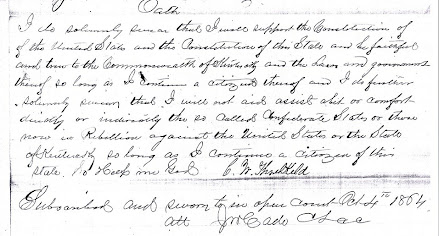 Oath
I do solemnly swear that I will support the Constitution of
of the United State and the Constitution of this State and be faithful
and true to the Commonwealth of Kentucky and the Laws and government
thereof so long as I continue a citizen thereof and I do further
solemnly swear that I will not aid assist abet or comfort
directly or indirectly the so called Confederate States or those
now in Rebellion against the United States or the State
of Kentucky so long as I continue a citizen of this
State. So Help me God C. W. Threlkeld
Subscribed and sworn to in open Court Oct 4th 1864
att J W Cado